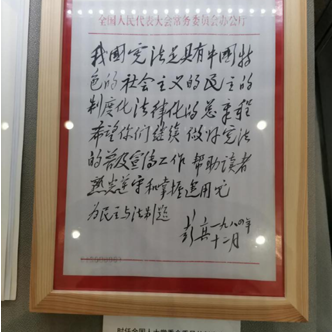 全国人民代表大会常务委员会办公厅
我国宪法是具有中国特
色的社会主义的民主的
制度化法律化的总章程
希望你们继续做好宪法
的普及宣传工作 帮助读者
遵守和掌握运用它
为民主与法制题
彭真 一九八四年
十二月